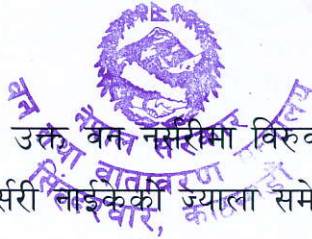 नेपाल सरकार
वन तथा वातावरण मन्त्रालय
सिंहदरबार, काठमाडौं
उक्त वन नर्सरीमा विरुव
र्सरी नाईकेको ज्याला समे